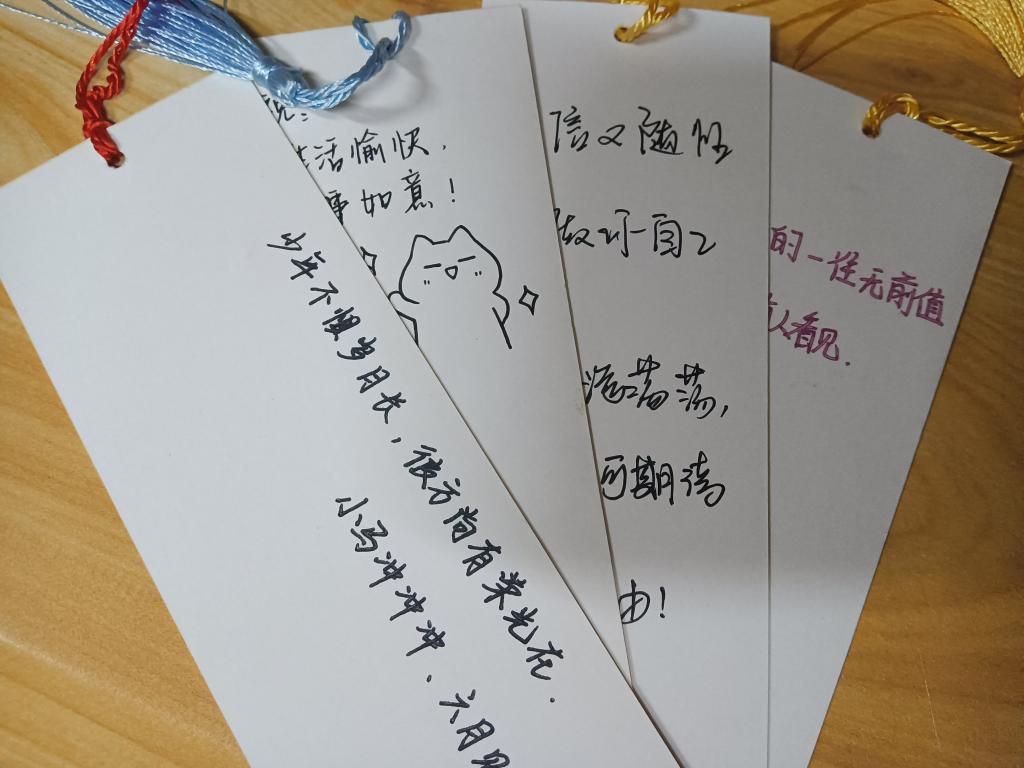 少年不惧岁月长，彼方尚有荣光在.
小马冲冲冲、六月见
活愉快，
事如意！
信又随性
做好自己
荡荡，
可期待
由！
的一往无前值
人看见.